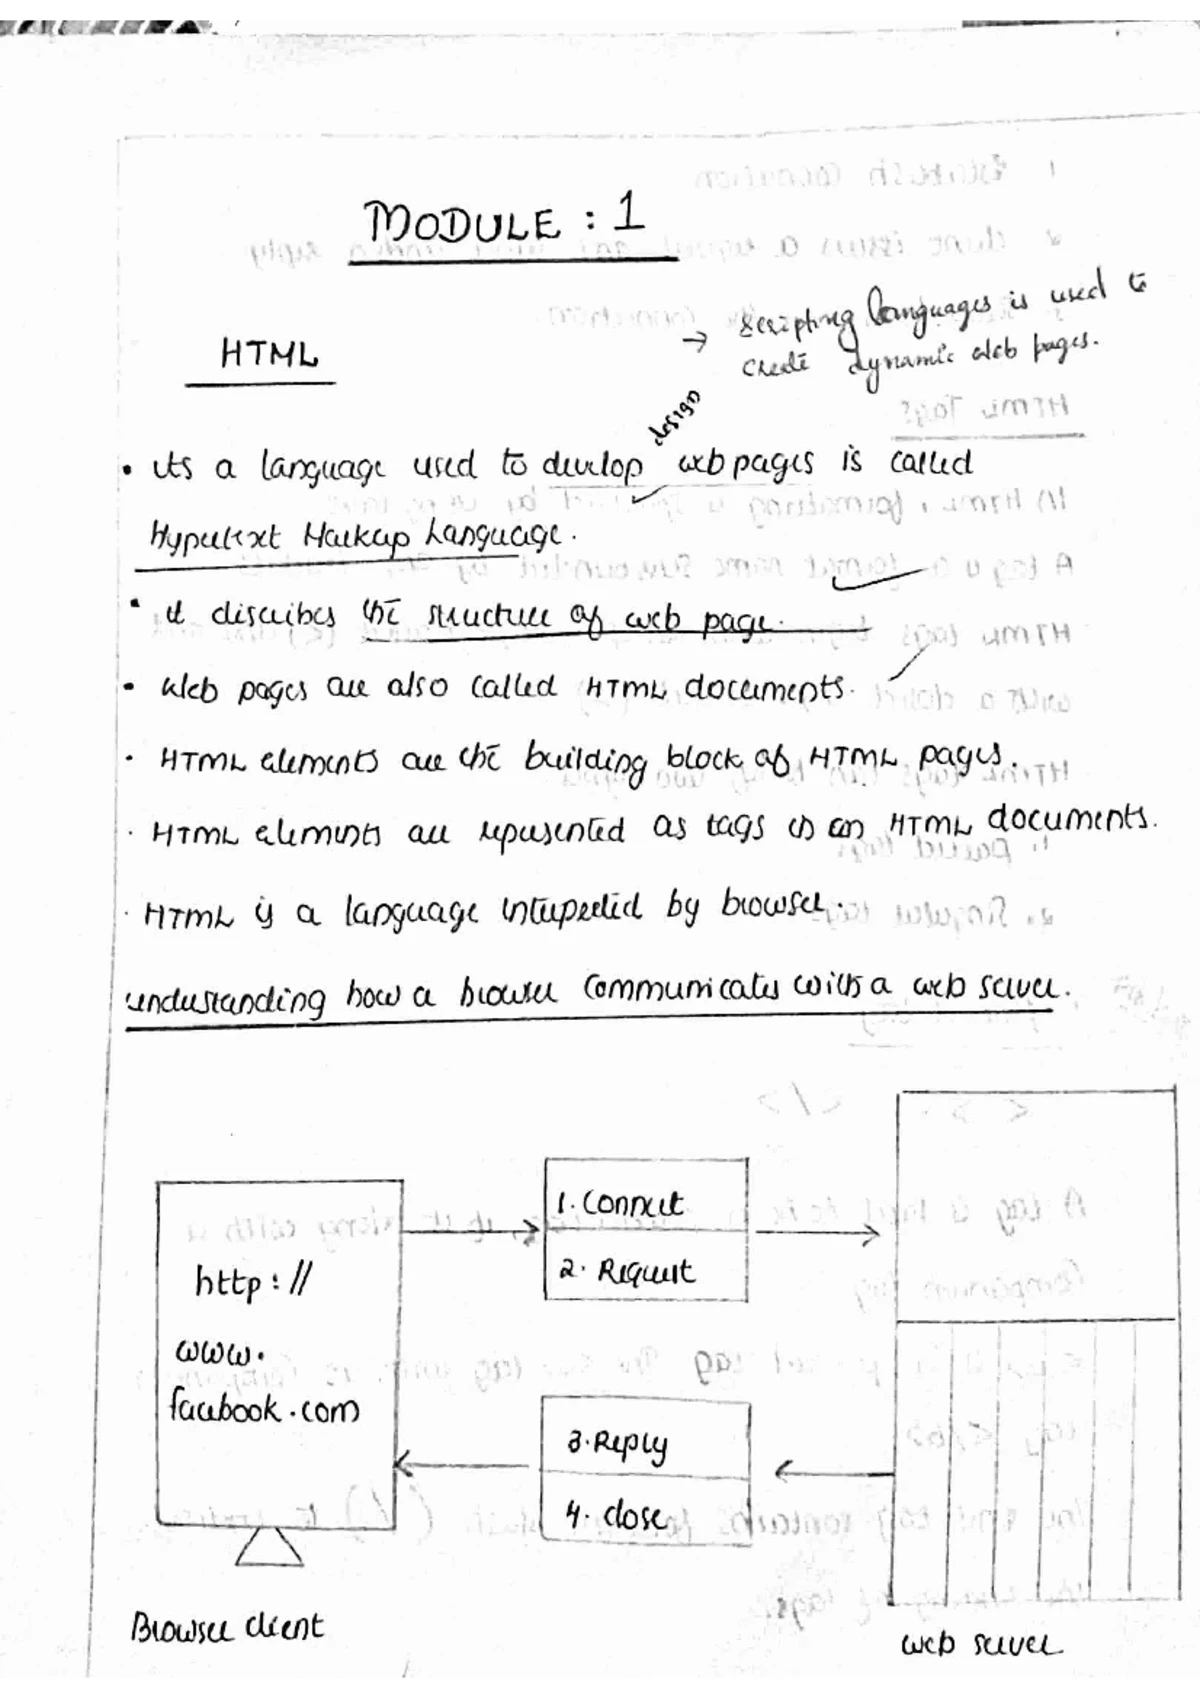 MODULE : 1
→ Scripting languages is used to
create dynamic web pages.
HTML
design
• its a language used to develop web pages is called
Hypertext Markup Language.
• it describes the structure of web page.
• Web pages are also called HTML documents.
• HTML elements are the building block of HTML pages.
• HTML elements are represented as tags in an HTML documents.
• HTML is a language interpreted by browser.
understanding how a browser communicates with a web server.
1. Connect
2. Request
http://
www.
facebook.com
3. Reply
4. close
Browser client
web server